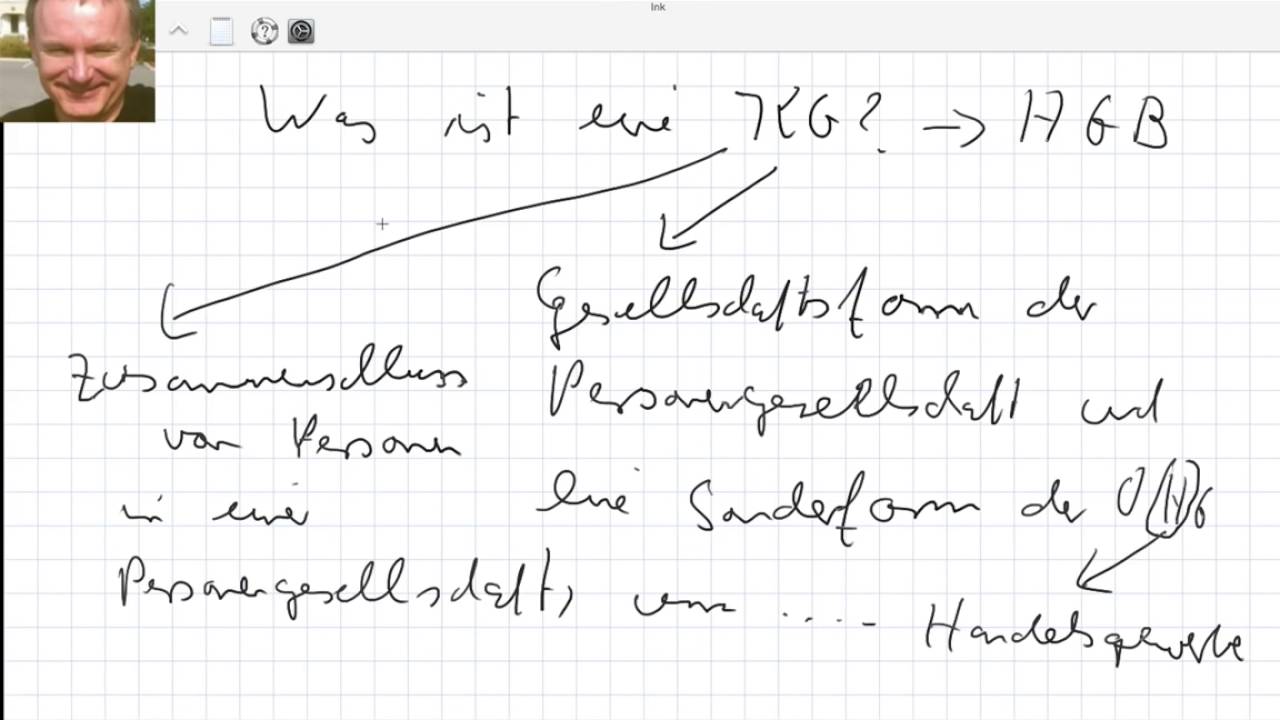 Ink
Was ist eine KG? → HGB
Gesellschaftsform der
Personengesellschaft und
eine Sonderform der O(H)G
Handelsgewerbe
Zusammenschluss
von Personen
in einer
Personengesellschaft, um .....